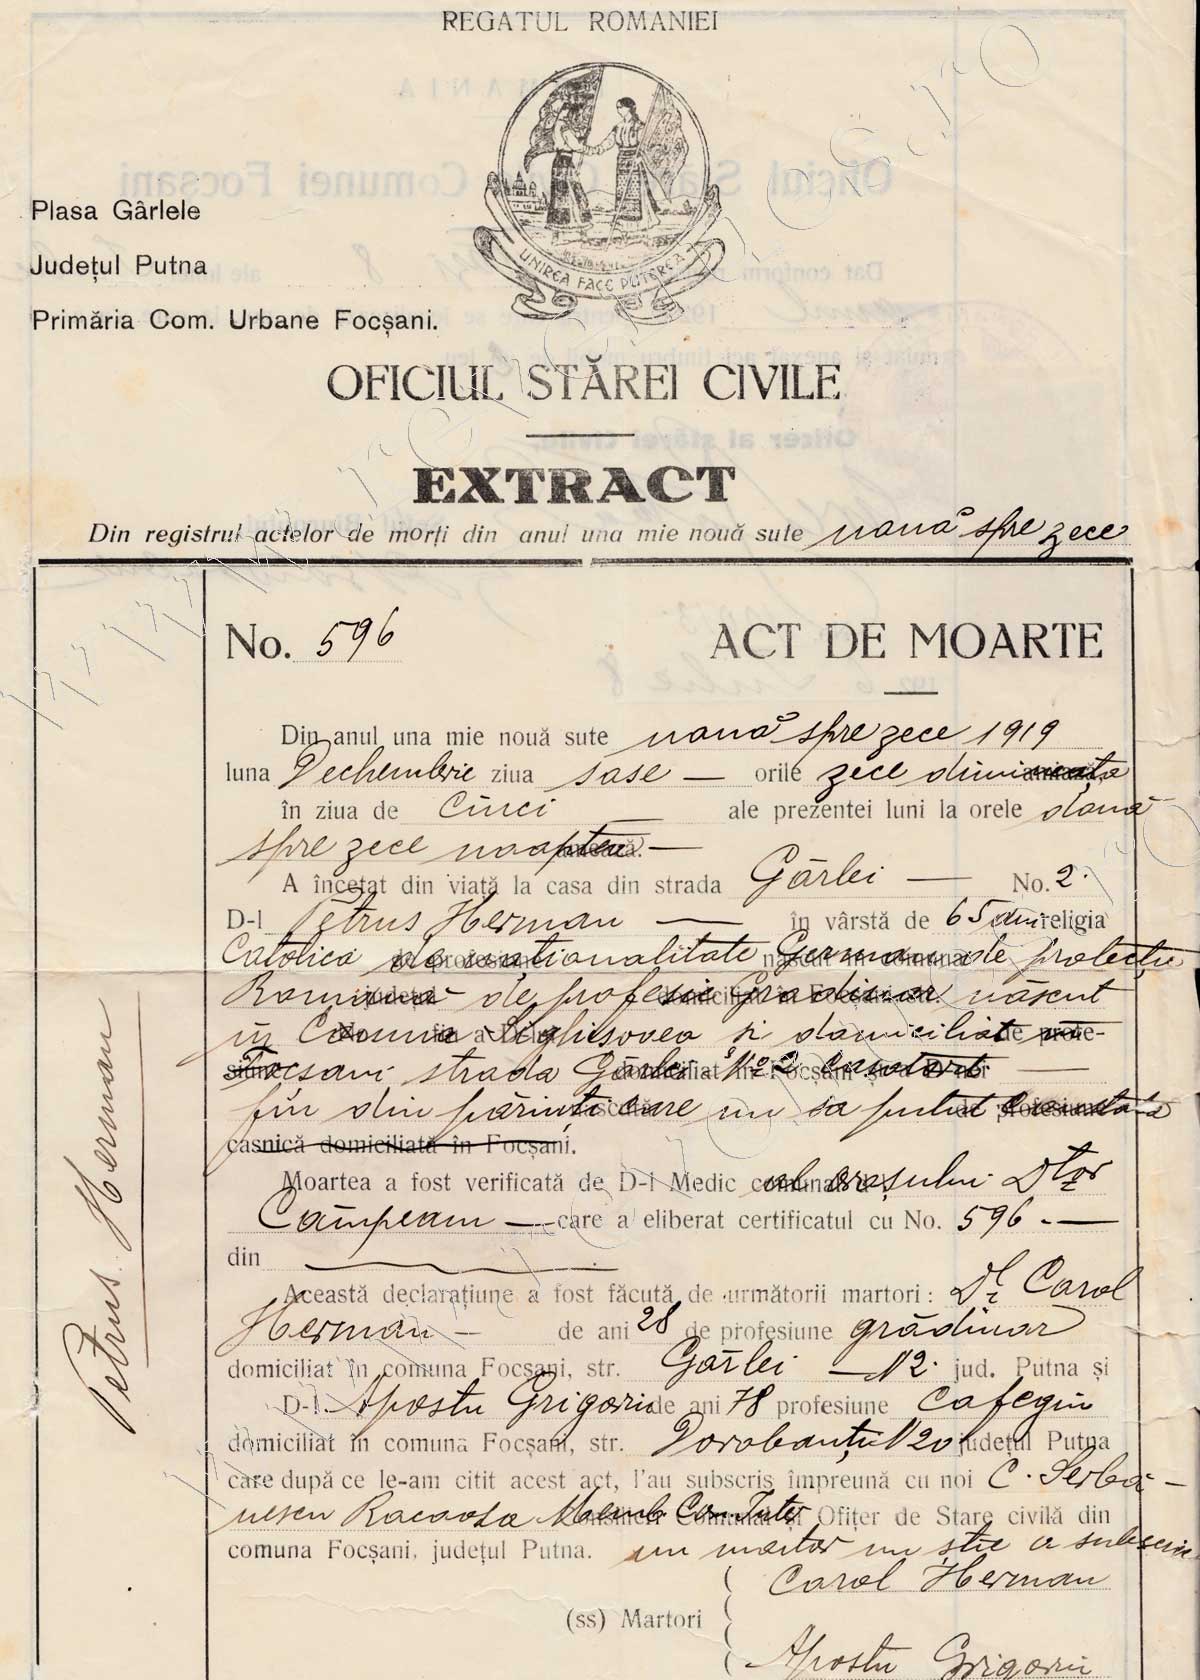 REGATUL ROMANIEI
UNIREA FACE PUTEREA
Plasa Gârlele
Județul Putna
Primăria Com. Urbane Focșani.
OFICIUL STĂREI CIVILE
EXTRACT
Din registrul actelor de morți din anul una mie nouă sute nouă spre zece
No. 596 ACT DE MOARTE
Din anul una mie nouă sute nouă spre zece 1919
luna Dechembrie ziua sase — orile zece dimineata
în ziua de cinci ale prezentei luni la orele două
spre zece noaptea —
A încetat din viață la casa din strada Gârlei — No. 2.
D-l Petrus Herman — în vârstă de 65 ani religia
Catolica de naționalitate Germana de protecție
Romana de profesie Gradinar născut
în Comuna si domiciliat în
Focsani strada Gârlei No 2 —
fiu din părinți care nu sa putut constata
casnică domiciliată în Focșani.
Moartea a fost verificată de D-l Medic al orașului Dtor
Câmpeanu — care a eliberat certificatul cu No. 596 . —
din
Această declarațiune a fost făcută de următorii martori: Dl Carol
Herman — de ani 28 de profesiune grădinar
domiciliat în comuna Focșani, str. Gârlei — N 2. jud. Putna și
D-l. Apostu Grigoriu de ani 78 profesiune Cafegiu
domiciliat în comuna Focșani, str. Dorobanțu N 20 județul Putna
care după ce le-am citit acest act, l'au subscris împreună cu noi C. Serbă-
nescu Memb. Com. Inter Ofițer de Stare civilă din
comuna Focșani, județul Putna. un martor nu știe a subscrie
Carol Herman
(ss) Martori
Apostu Grigoriu
Petrus Herman